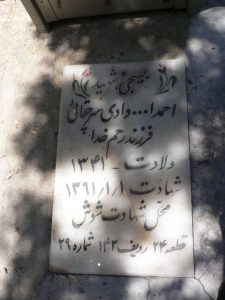 بسیجی شهید
احمدا... دادی سرقحانی
فرزند رحم خدا
ولادت - ۱۳۴۱
شهادت ۱۳۶۱/۱/۱
محل شهادت شوش
قطعه ۲۴ ردیف ۱۴۲ شماره ۲۹